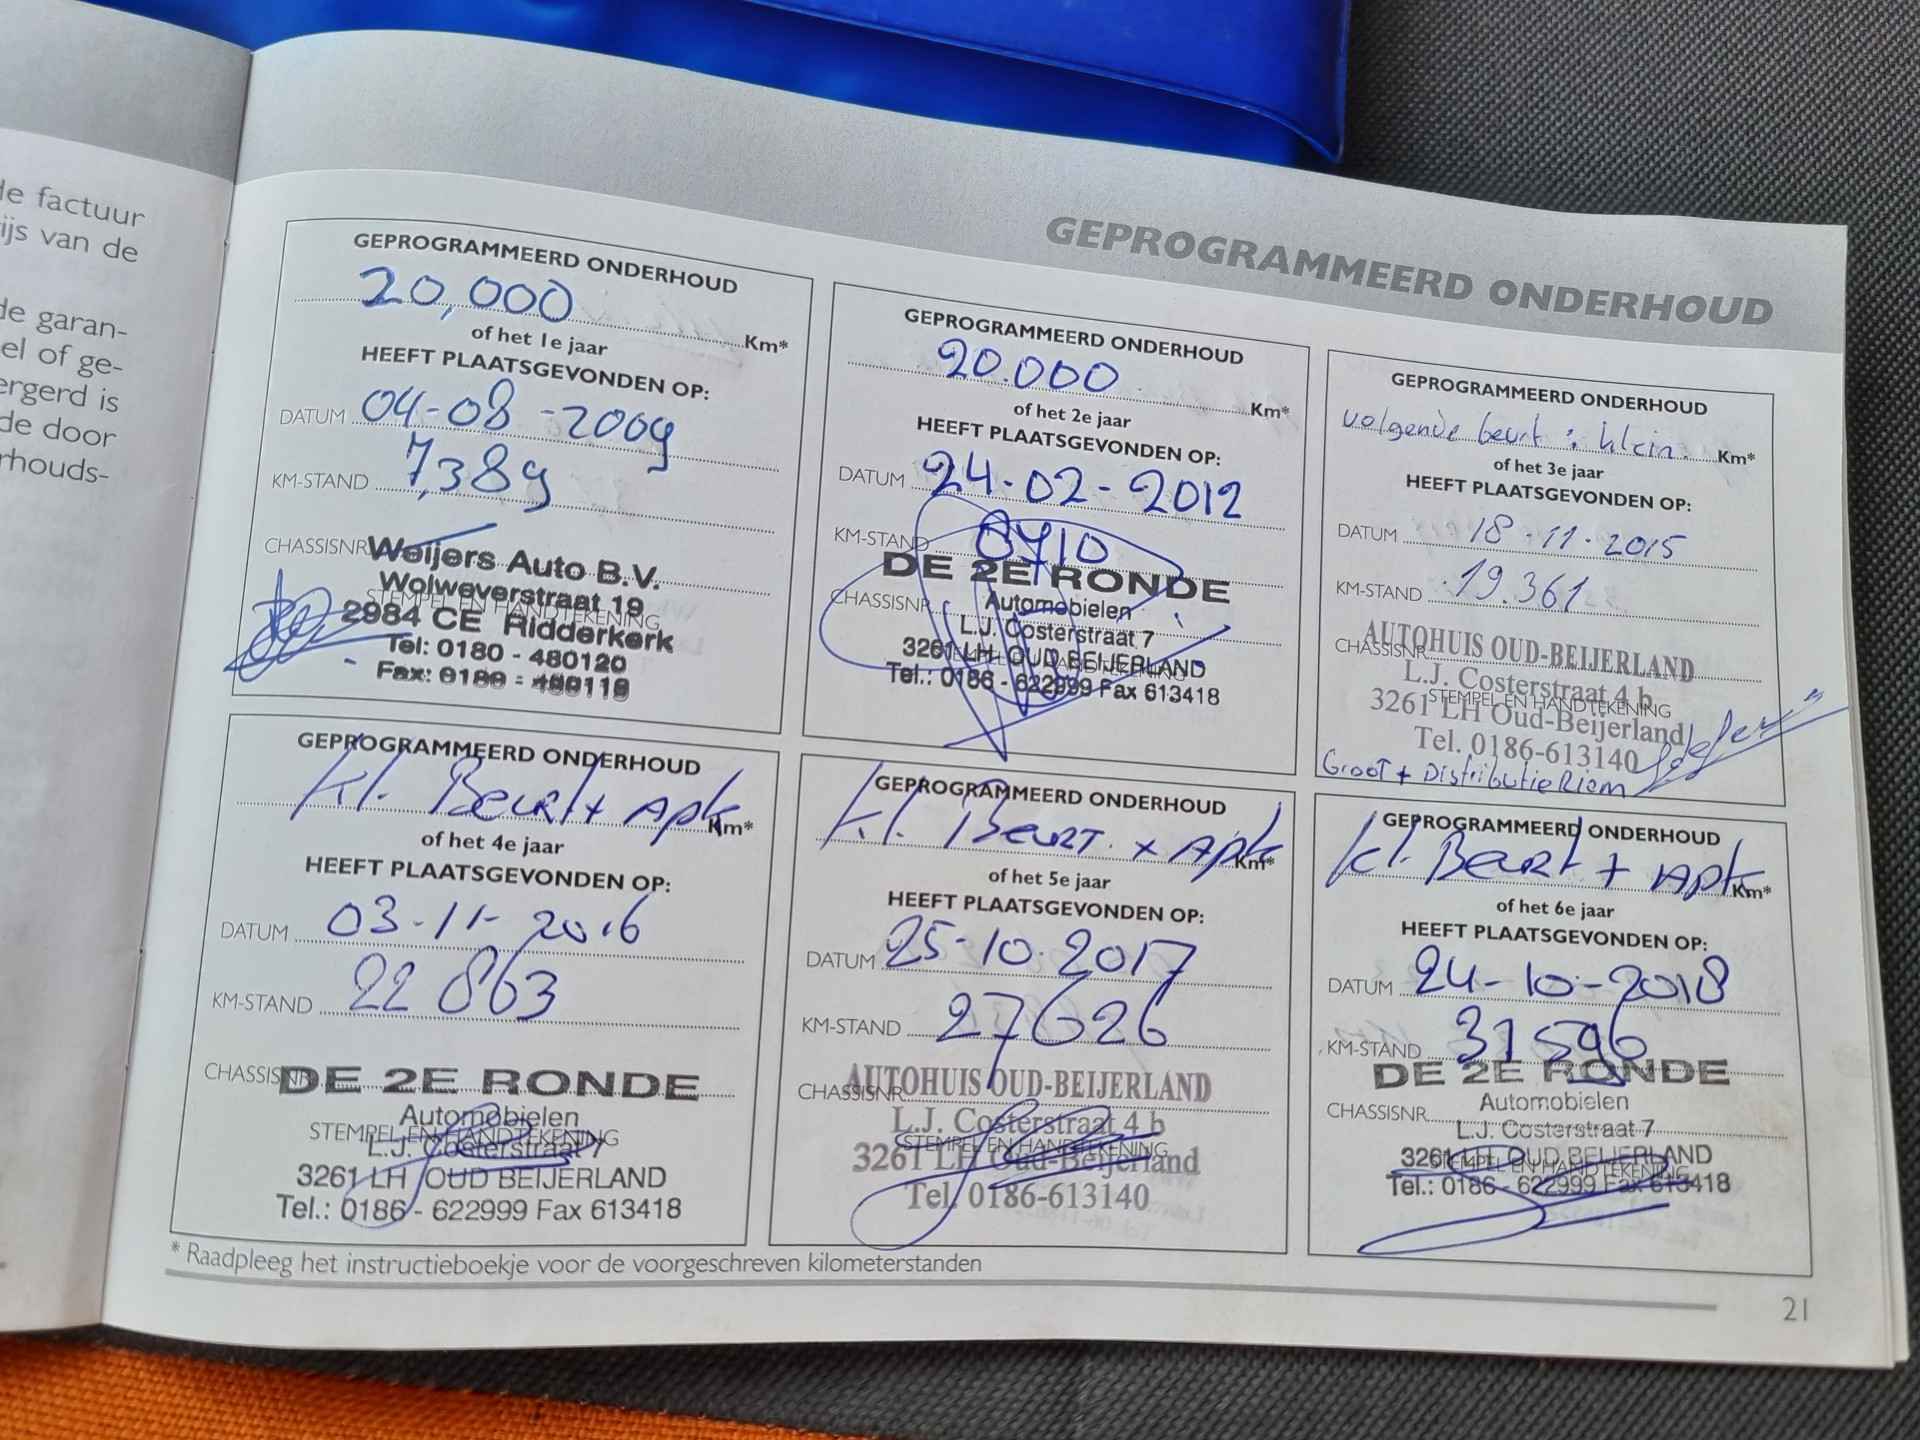 de factuur
ijs van de
de garan-
el of ge-
ergerd is
de door
rhouds-
GEPROGRAMMEERD ONDERHOUD
GEPROGRAMMEERD ONDERHOUD
20,000 Km*
of het 1e jaar
HEEFT PLAATSGEVONDEN OP:
DATUM 04-08-2009
KM-STAND 7,389
CHASSISNR
Weijers Auto B.V.
Wolweverstraat 19
STEMPEL EN HANDTEKENING
2984 CE Ridderkerk
Tel: 0180 - 480120
Fax: 0180 -
GEPROGRAMMEERD ONDERHOUD
20.000 Km*
of het 2e jaar
HEEFT PLAATSGEVONDEN OP:
DATUM 24-02-2012
KM-STAND
DE 2E RONDE
CHASSISNR. Automobielen
L.J. Costerstraat 7
3261 LH OUD BEIJERLAND
Tel.: 0186 - 622999 Fax 613418
GEPROGRAMMEERD ONDERHOUD
volgende beurt : klein. Km*
of het 3e jaar
HEEFT PLAATSGEVONDEN OP:
DATUM 18-11-2015
KM-STAND 19.361
AUTOHUIS OUD-BEIJERLAND
CHASSISNR.
L.J. Costerstraat 4 b
STEMPEL EN HANDTEKENING
3261 LH Oud-Beijerland
Tel. 0186-613140
Groot + Distributie Riem
GEPROGRAMMEERD ONDERHOUD
Kl. Beurt + APK Km*
of het 4e jaar
HEEFT PLAATSGEVONDEN OP:
DATUM 03-11-2016
KM-STAND 22 863
CHASSISNR.
DE 2E RONDE
Automobielen
STEMPEL EN HANDTEKENING
L.J. Costerstraat 7
3261 LH OUD BEIJERLAND
Tel.: 0186 - 622999 Fax 613418
GEPROGRAMMEERD ONDERHOUD
Kl. Beurt + APK Km*
of het 5e jaar
HEEFT PLAATSGEVONDEN OP:
DATUM 25-10-2017
KM-STAND 27626
CHASSISNR
AUTOHUIS OUD-BEIJERLAND
L.J. Costerstraat 4 b
STEMPEL EN HANDTEKENING
3261 LH Oud-Beijerland
Tel. 0186-613140
GEPROGRAMMEERD ONDERHOUD
Kl. Beurt + APK Km*
of het 6e jaar
HEEFT PLAATSGEVONDEN OP:
DATUM 24-10-2018
KM-STAND 31596
DE 2E RONDE
CHASSISNR. Automobielen
L.J. Costerstraat 7
3261 LH OUD BEIJERLAND
STEMPEL EN HANDTEKENING
Tel.: 0186 - 622999 Fax 613418
* Raadpleeg het instructieboekje voor de voorgeschreven kilometerstanden
21